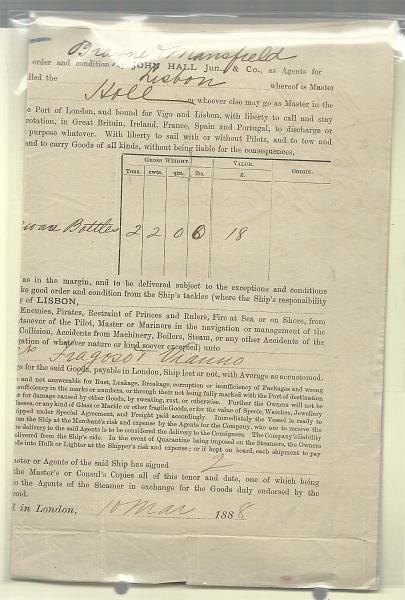 Brayne & Mansfield
order and condition by JOHN HALL Jun., & Co., as Agents for
lled the Lisbon whereof is Master
Holl or whoever else may go as Master in the
Port of London, and bound for Vigo and Lisbon, with liberty to call and stay
rotation, in Great Britain, Ireland, France, Spain and Portugal, to discharge or
purpose whatever. With liberty to sail with or without Pilots, and to tow and
and to carry Goods of all kinds, without being liable for the consequences,
GROSS WEIGHT. VALUE. ORIGIN.
Tons. cwts. qrs. lbs. £.
ware Bottles 2 2 0 0 18
as in the margin, and to be delivered subject to the exceptions and conditions
ke good order and condition from the Ship's tackles (where the Ship's responsibility
y of LISBON,
Enemies, Pirates, Restraint of Princes and Rulers, Fire at Sea or on Shore, from
tsoever of the Pilot, Master or Mariners in the navigation or management of the
Collision, Accidents from Machinery, Boilers, Steam, or any other Accidents of the
gation of whatever nature or kind soever excepted) unto
Fragoso &
ge for the said Goods, payable in London, Ship lost or not, with Average as accustomed.
and not answerable for Rust, Leakage, Breakage, corruption or insufficiency of Packages and wrong
nsufficiency in the marks or numbers, or through their not being fully marked with the Port of destination
r for damage caused by other Goods, by sweating, rust, or otherwise. Further the Owners will not be
lasses, or any kind of Glass or Marble or other fragile Goods, or for the value of Specie, Watches, Jewellery
ipped under Special Agreement, and Freight paid accordingly. Immediately the Vessel is ready to
om the Ship at the Merchant's risk and expense by the Agents for the Company, who are to receive the
e delivery to the said Agents is to be considered the delivery to the Consignees. The Company's liability
elivered from the Ship's side. In the event of Quarantine being imposed on the Steamers, the Owners
ds into Hulk or Lighter at the Shipper's risk and expense; or if kept on board, each shipment to pay
ster or Agents of the said Ship has signed 2
the Master's or Consul's Copies all of this tenor and date, one of which being
o the Agents of the Steamer in exchange for the Goods duly endorsed by the
void.
d in London, 10 Mar 1888